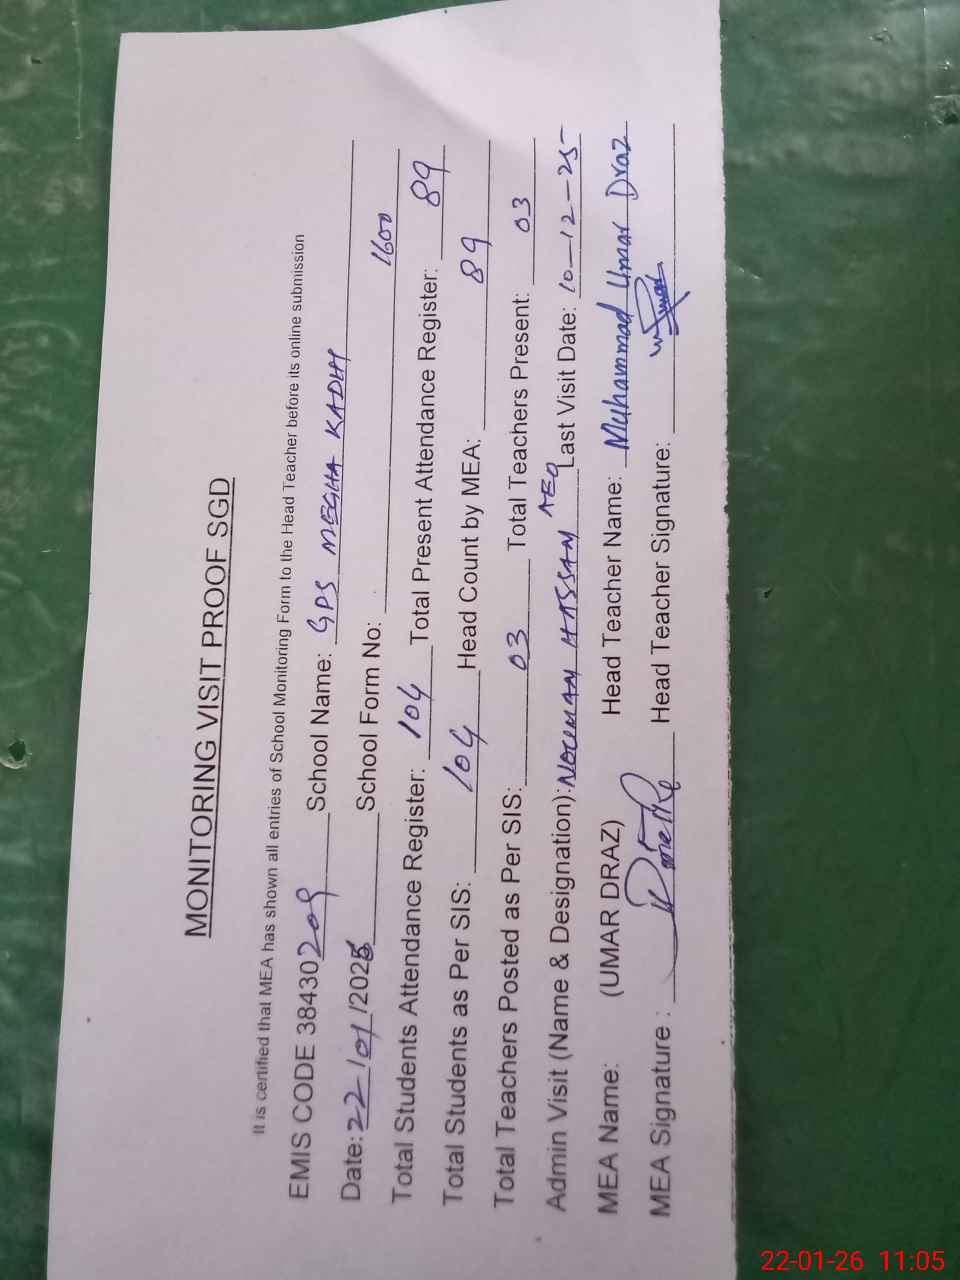 MONITORING VISIT PROOF SGD
It is certified that MEA has shown all entries of School Monitoring Form to the Head Teacher before its online submission
EMIS CODE 38430209 School Name: GPS MEGHA KADHI
Date: 22/01/2026 School Form No: 1600
Total Students Attendance Register: 104 Total Present Attendance Register: 89
Total Students as Per SIS: 104 Head Count by MEA: 89
Total Teachers Posted as Per SIS: 03 Total Teachers Present: 03
Admin Visit (Name & Designation): NOUMAN HASSAN AEO Last Visit Date: 10-12-25
MEA Name: (UMAR DRAZ) Head Teacher Name: Muhammad Umar Draz
MEA Signature : Head Teacher Signature:
22-01-26 11:05